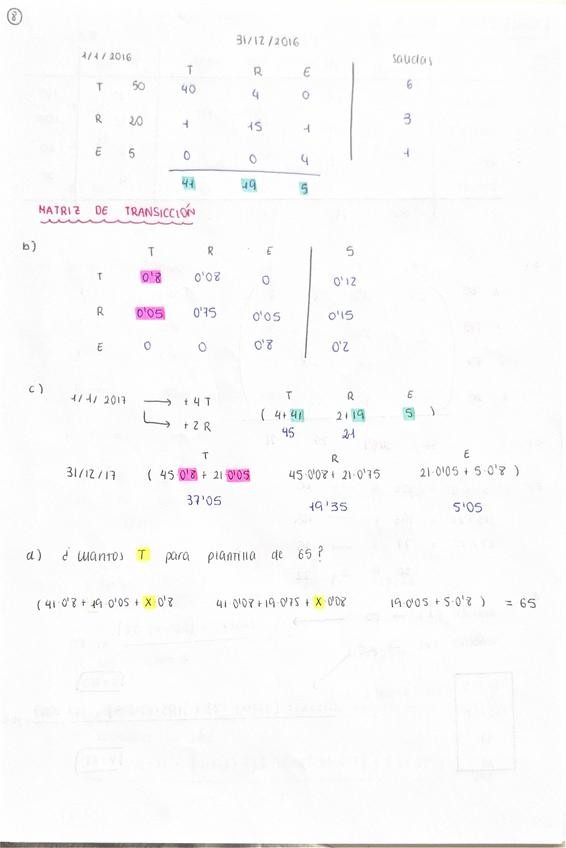 8
31/12/2016
1/1/2016
T R E salidas
T 50 40 4 0 6
R 20 1 15 1 3
E 5 0 0 4 1
41 19 5
MATRIZ DE TRANSICCIÓN
b)
T R E S
T 0'8 0'08 0 0'12
R 0'05 0'75 0'05 0'15
E 0 0 0'8 0'2
c)
T R E
1/1/2017 → +4 T ( 4+41 2+19 5 )
+2 R 45 21
T R E
31/12/17 ( 45·0'8 + 21·0'05 45·0'08 + 21·0'75 21·0'05 + 5·0'8 )
37'05 19'35 5'05
a) ¿ cuantos T para plantilla de 65?
( 41·0'8 + 19·0'05 + X·0'8 41·0'08 + 19·0'75 + X·0'08 19·0'05 + 5·0'8 ) = 65